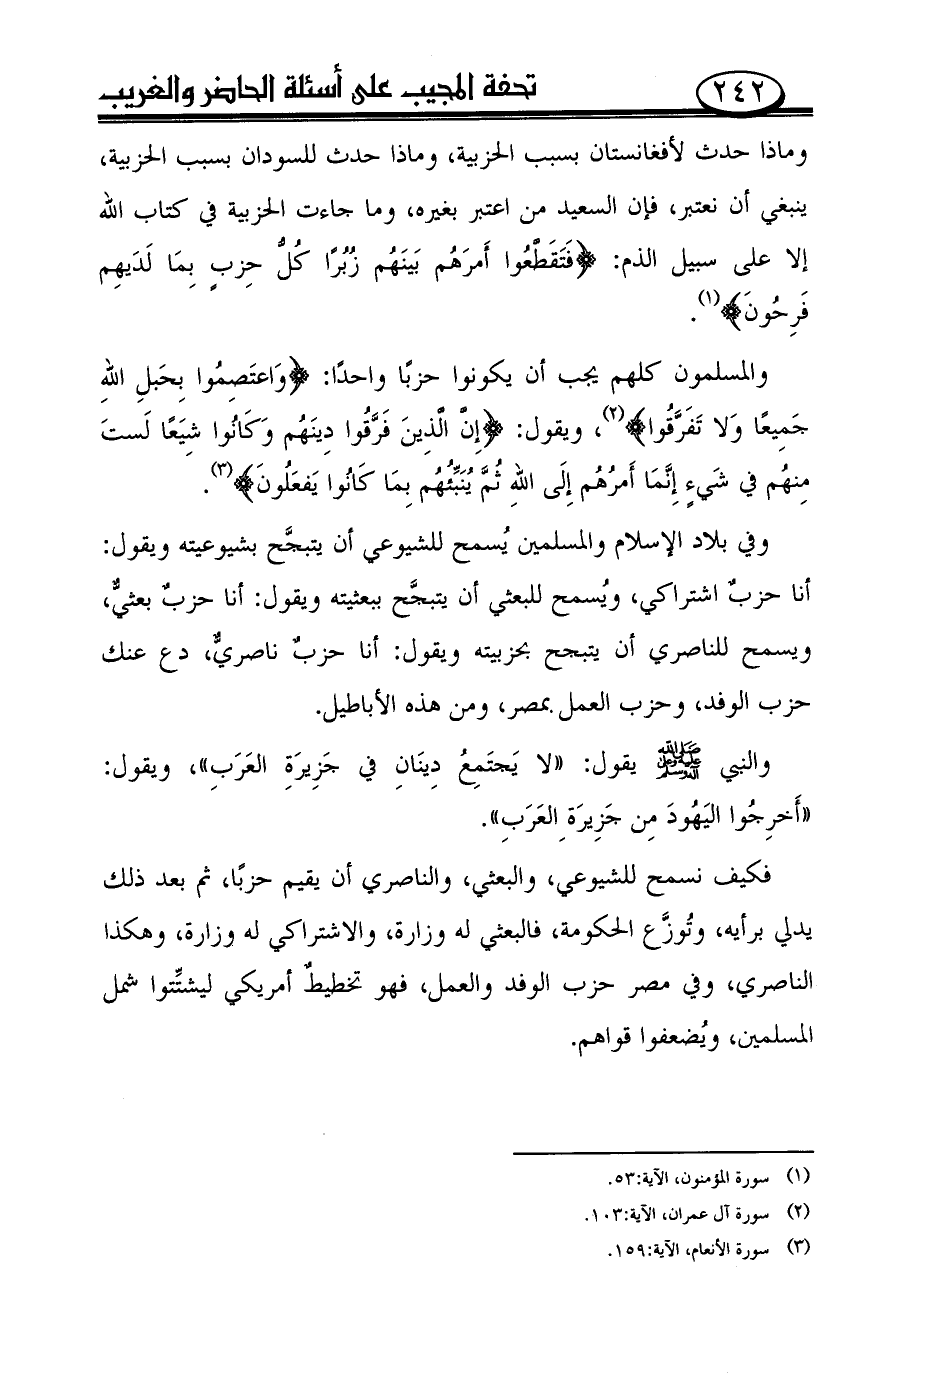 ٢٤٢
تحفة المجيب على أسئلة الحاضر والغريب
وماذا حدث لأفغانستان بسبب الحزبية، وماذا حدث للسودان بسبب الحزبية،
ينبغي أن نعتبر، فإن السعيد من اعتبر بغيره، وما جاءت الحزبية في كتاب الله
إلا على سبيل الذم: ﴿فَتَقَطَّعُوا أَمرَهُم بَينَهُم زُبُرًا كُلُّ حِزبٍ بِمَا لَدَيهِم
فَرِحُونَ﴾(١).
والمسلمون كلهم يجب أن يكونوا حزبًا واحدًا: ﴿وَاعتَصِمُوا بِحَبلِ اللهِ
جَمِيعًا وَلا تَفَرَّقُوا﴾(٢)، ويقول: ﴿إِنَّ الَّذِينَ فَرَّقُوا دِينَهُم وَكَانُوا شِيَعًا لَستَ
مِنهُم في شَيءٍ إِنَّمَا أَمرُهُم إِلَى اللهِ ثُمَّ يُنَبِّئُهُم بِمَا كَانُوا يَفعَلُونَ﴾(٣).
وفي بلاد الإسلام والمسلمين يُسمح للشيوعي أن يتبجَّح بشيوعيته ويقول:
أنا حزبٌ اشتراكي، ويُسمح للبعثي أن يتبجَّح ببعثيته ويقول: أنا حزبٌ بعثيٌّ،
ويسمح للناصري أن يتبجح بحزبيته ويقول: أنا حزبٌ ناصريٌّ، دع عنك
حزب الوفد، وحزب العمل بمصر، ومن هذه الأباطيل.
والنبي ﷺ يقول: «لا يَجتَمِعُ دِينَانِ في جَزِيرَةِ العَرَبِ»، ويقول:
«أَخرِجُوا اليَهُودَ مِن جَزِيرَةِ العَرَبِ».
فكيف نسمح للشيوعي، والبعثي، والناصري أن يقيم حزبًا، ثم بعد ذلك
يدلي برأيه، وتُوزَّع الحكومة، فالبعثي له وزارة، والاشتراكي له وزارة، وهكذا
الناصري، وفي مصر حزب الوفد والعمل، فهو تخطيطٌ أمريكي ليشتِّتوا شمل
المسلمين، ويُضعفوا قواهم.
(١) سورة المؤمنون، الآية:٥٣.
(٢) سورة آل عمران، الآية:١٠٣.
(٣) سورة الأنعام، الآية:١٥٩.